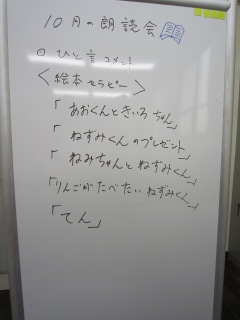 10月の朗読会
○ ひと言コメント
<絵本セラピー>
「あおくんときいろちゃん」
「ねずみくんのプレゼント」
「ねみちゃんとねずみくん」
「りんごがたべたいねずみくん」
「てん」